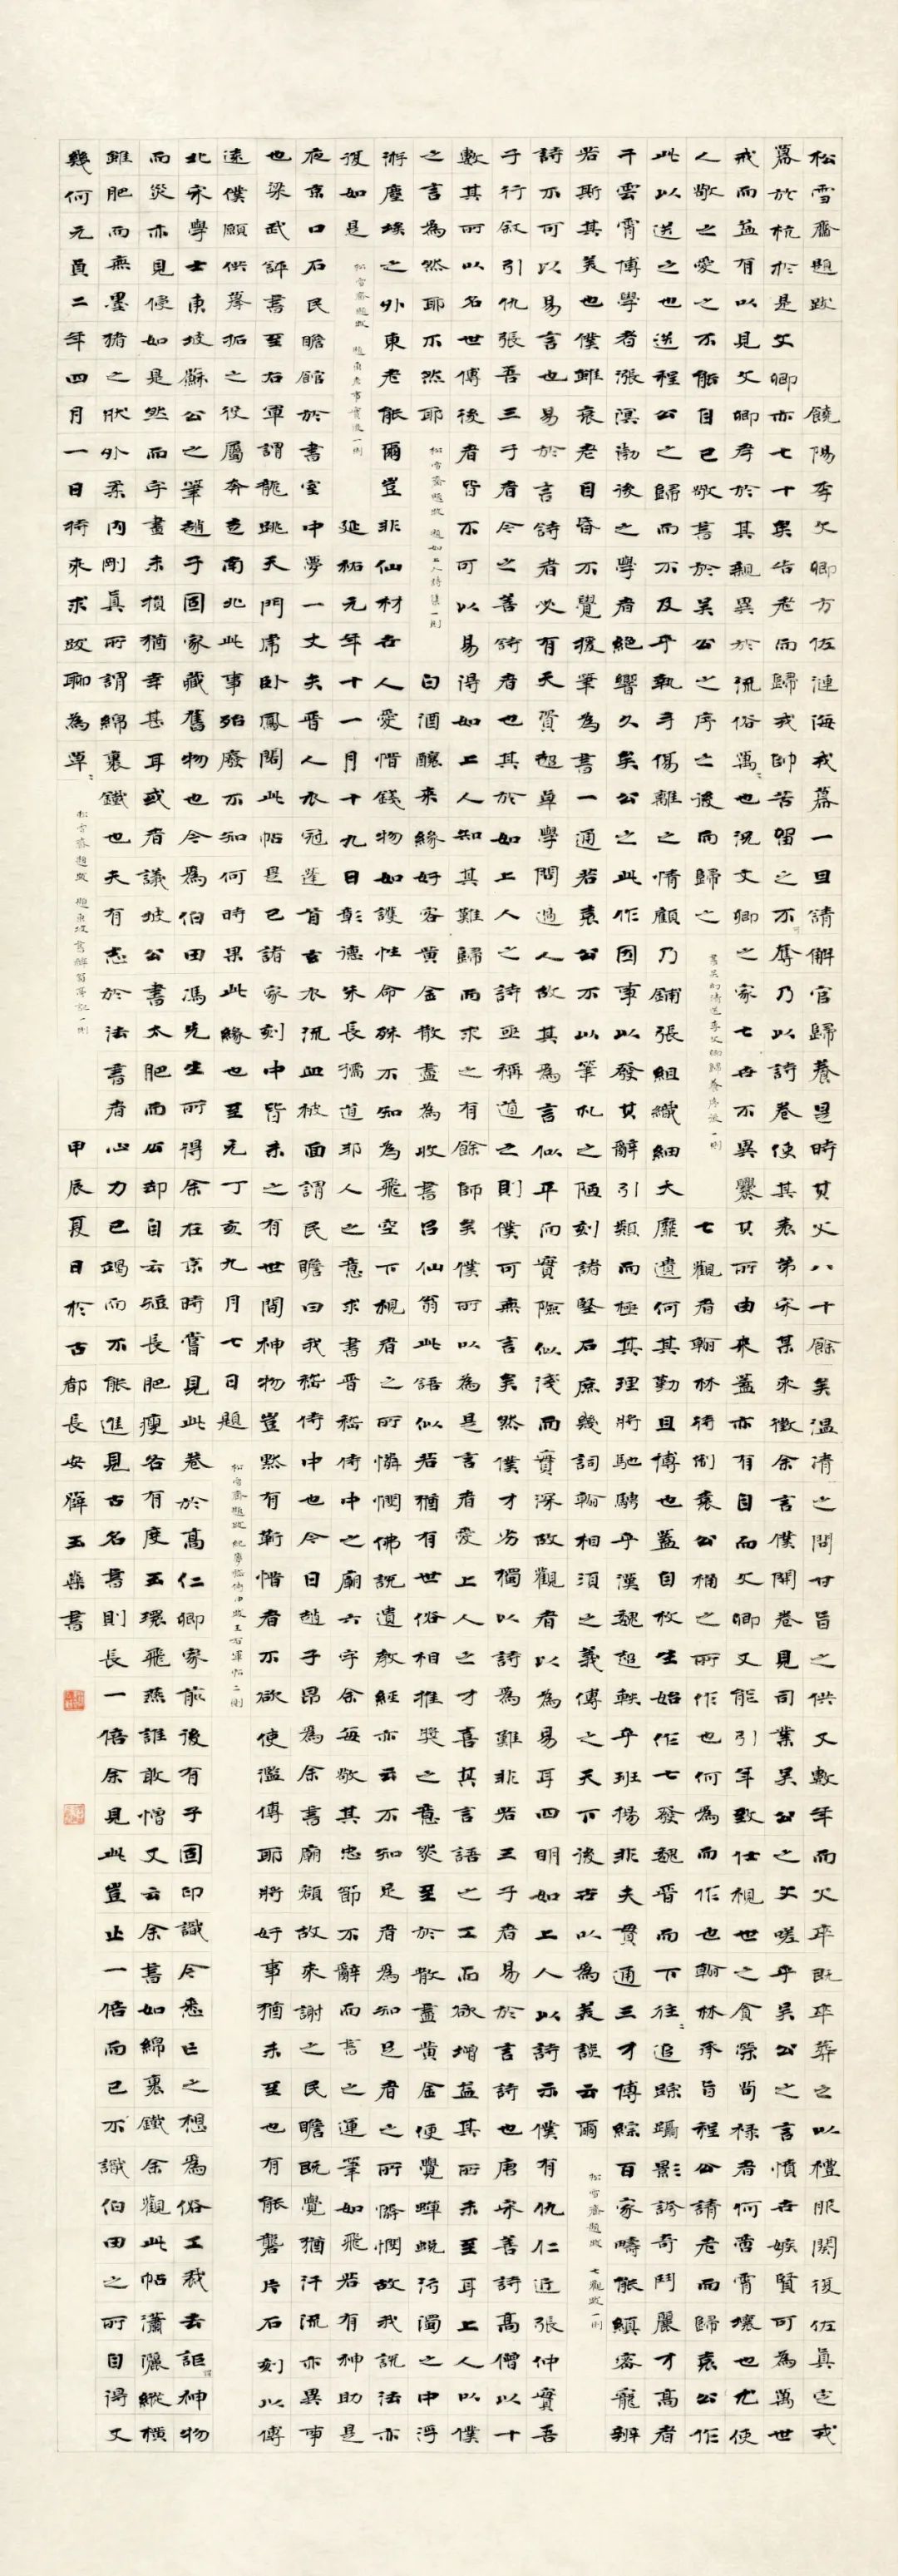 松雪齋題跋 饒陽李文卿方佐漣海戎幕一旦請解官歸養是時其父八十餘矣溫凊之問甘旨之供又數年而父卒既卒葬之以禮服闋復佐真定戎
幕於杭於是文卿亦七十矣告老而歸戎帥苦留之不可奪乃以詩卷使其表弟宋某來徵余言僕開卷見司業吳公之文嗟乎吳公之言憤世嫉賢可為萬世
戒而並有以見文卿孝於其親異於流俗萬萬也況文卿之家七世不異爨其所由來蓋亦有自而文卿又能引年致仕視世之貪榮苟祿者何啻霄壤也尤使
人敬之愛之不能自已敬書於吳公之序之後而歸之 書吳幼清送李文卿歸養序後一則 七觀者翰林待制袁公桷之所作也何為而作也翰林承旨程公請老而歸袁公作
此以送之也送程公之歸而不及乎執手傷離之情顧乃鋪張組織細大靡遺何其勤且博也蓋自枚生始作七發魏晉而下往往追踪躡影誇奇鬥麗才高者
干雲霄博學者漲溟渤後之學者絕響久矣公之此作因事以發其辭引類而極其理將馳騁乎漢魏超軼乎班揚非夫貫通三才博綜百家疇能縝密寵辨
若斯其美也僕雖衰老目昏不覺援筆為書一通若袁公不以筆札之陋刻諸堅石庶幾詞翰相須之義傳之天下後世以為美談云爾 松雪齋題跋 七觀跋一則
詩不可以易言也易於言詩者必有天資超卓學問過人故其為言似平而實險似淺而實深故觀者以為易耳四明如上人以詩示僕有仇仁近張仲實吾
子行敘引仇張吾三子者今之善詩者也其於如上人之詩亟稱道之則僕可無言矣然僕才劣獨以詩為難非若三子者易於言詩也唐宋善詩高僧以十
數其所以名世傳後者皆不可以易得如上人知其難歸而求之有餘師矣僕所以為是言者愛上人之才喜其言語之工而欲增益其所未至耳上人以僕
之言為然耶不然耶 松雪齋題跋 題如上人詩集一則 白酒釀來緣好客黃金散盡為收書呂仙翁此語似若猶有世俗相推獎之意然至於散盡黃金便覺蟬蛻污濁之中浮
游塵埃之外東老能爾豈非仙材世人愛惜錢物如護性命殊不知為飛空下視者之所憐憫佛說遺教經亦云不知足者為知足者之所憐憫故我說法亦
復如是 松雪齋題跋 題東老事實後一則 延祐元年十一月十九日彰德朱長孺道邪人之意求書晉嵇侍中之廟六字余每敬其忠節不辭而書之運筆如飛若有神助是
夜京口石民瞻館於書室中夢一丈夫晉人衣冠蓬首玄衣流血被面謂民瞻曰我嵇侍中也今日趙子昂為余書廟額故來謝之民瞻既覺猶汗流亦異事
也梁武評書至右軍謂龍跳天門虎臥鳳閣此帖是已諸家刻中皆未之有世間神物豈默有靳惜者不欲使濫傳耶將好事猶未至也有能礱片石刻以傳
遠僕願供摹拓之役屬奔走南北此事殆廢不知何時果此緣也至元丁亥九月七日題 松雪齋題跋 紀夢嵇侍中 跋王右軍帖二則
北宋學士東坡蘇公之筆趙子固家藏舊物也今為伯田馮先生所得余在京時嘗見此卷於高仁卿家前後有子固印識今悉亡之想為俗工裁去詎神物
而災亦見侵如是然而字畫未損猶幸甚耳或者議坡公書太肥而公却自云短長肥瘦各有度玉環飛燕誰敢憎又云余書如綿裹鐵余觀此帖瀟灑縱橫
雖肥而無墨豬之狀外柔內剛真所謂綿裹鐵也夫有志於法書者心力已竭而不能進見古名書則長一倍余見此豈止一倍而已不識伯田之所自得又
幾何元貞二年四月一日將來求跋聊為草草 松雪齋題跋 題東坡書醉翁亭記一則 甲辰夏日於古都長安薛玉書